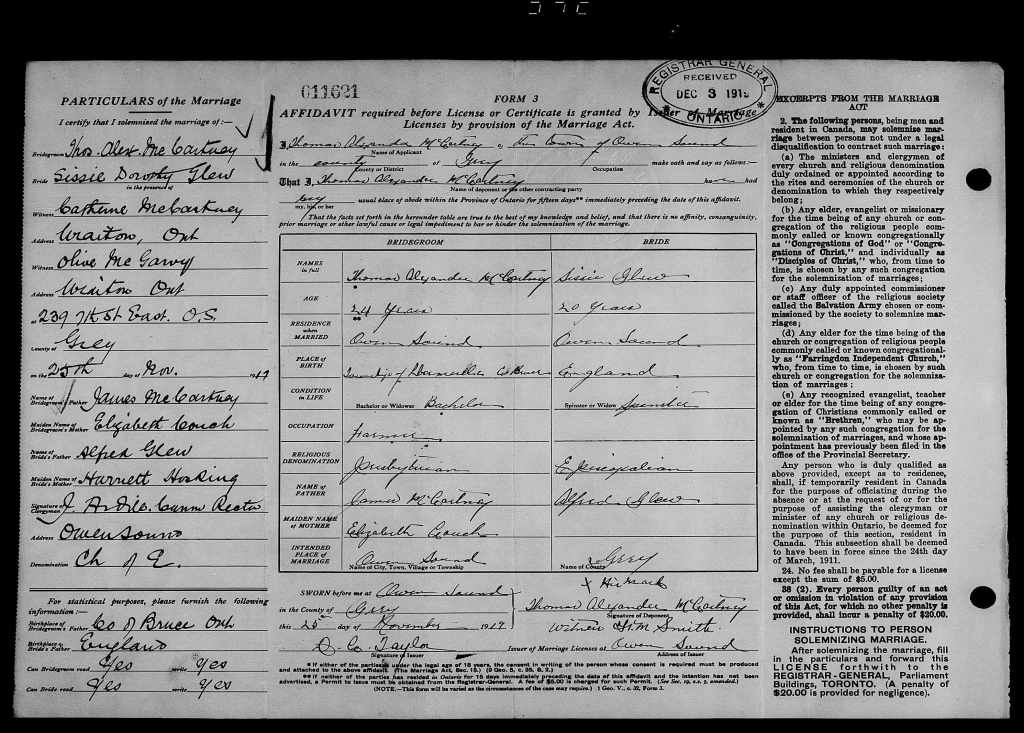 011621
REGISTRAR GENERAL
RECEIVED
DEC 3 191
ONTARIO
PARTICULARS of the Marriage
I certify that I solemnized the marriage of:—
Bridegroom Thos. Alex. McCartney
Bride Sissie Dorothy Glew
in the presence of
Witness Catherine McCartney
Address Wiarton, Ont
Witness Olive McGarvy
Address Wiarton Ont
at 239 7th St East. O.S.
County of Grey
on the 25th day of Nov. 1917
Name of Bridegroom's Father James McCartney
Maiden Name of Bridegroom's Mother Elizabeth Couch
Name of Bride's Father Alfred Glew
Maiden Name of Bride's Mother Harriett Hosking
Signature of Clergyman Rector
Address Owen Sound
Denomination Ch of E.
For statistical purposes, please furnish the following
information:—
Birthplace of Bridegroom's Father Co of Bruce Ont
Birthplace of Bride's Father England
Can Bridegroom read Yes write Yes
Can Bride read Yes write Yes
FORM 3
AFFIDAVIT required before License or Certificate is granted by Issuer of Marriage
Licenses by provision of the Marriage Act.
I, Thomas Alexander McCartney of Owen Sound
Name of Applicant
in the county of Grey make oath and say as follows:—
County or District Occupation
That I, Thomas Alexander McCartney have had
Name of deponent or the other contracting party
my usual place of abode within the Province of Ontario for fifteen days** immediately preceding the date of this affidavit.
my, his, or her
That the facts set forth in the hereunder table are true to the best of my knowledge and belief, and that there is no affinity, consanguinity,
prior marriage or other lawful cause or legal impediment to bar or hinder the solemnization of the marriage.
BRIDEGROOM BRIDE
NAMES in full Thomas Alexander McCartney Sissie Glew
AGE 24 Years 20 Years
RESIDENCE when MARRIED Owen Sound Owen Sound
PLACE OF BIRTH Township of England
CONDITION in LIFE Bachelor or Widower Bachelor Spinster or Widow Spinster
OCCUPATION Farmer
RELIGIOUS DENOMINATION Presbyterian Episcopalian
NAME OF FATHER James McCartney Alfred Glew
MAIDEN NAME of MOTHER Elizabeth Couch
INTENDED PLACE of MARRIAGE Owen Sound Grey
Name of City, Town, Village or Township Name of County
SWORN before me at Owen Sound
in the County of Grey
this 25 day of November 1917
D. Co. Taylor
Signature of Issuer
X His Mark
Thomas Alexander McCartney
Signature of Deponent
Witness H.M. Smith
Issuer of Marriage Licenses at Owen Sound
Address of Issuer
* If either of the parties is under the legal age of 18 years, the consent in writing of the person whose consent is required must be produced
and attached to the above affidavit. (The Marriage Act, Sec. 15.)
** If neither of the parties has resided in Ontario for 15 days immediately preceding the date of this affidavit and the intention has not been
advertised, a Permit to Issue must be obtained from the Registrar-General. A fee of $5.00 is charged for such Permit. (See Sec. 19, s.s. 5, amended.)
(NOTE.—This form will be varied as the circumstances of the case may require.) 1 Geo. V., c. 32, Form 3.
EXCERPTS FROM THE MARRIAGE
ACT
2. The following persons, being men and
resident in Canada, may solemnize mar-
riage between persons not under a legal
disqualification to contract such marriage:
(a) The ministers and clergymen of
every church and religious denomination
duly ordained or appointed according to
the rites and ceremonies of the church or
denomination to which they respectively
belong;
(b) Any elder, evangelist or missionary
for the time being of any church or con-
gregation of the religious people com-
monly called or known congregationally
as "Congregations of God" or "Congre-
gations of Christ," and individually as
"Disciples of Christ," who, from time to
time, is chosen by any such congregation
for the solemnization of marriages;
(c) Any duly appointed commissioner
or staff officer of the religious society
called the Salvation Army chosen or com-
missioned by the society to solemnize mar-
riages;
(d) Any elder for the time being of the
church or congregation of religious people
commonly called or known congregational-
ly as "Farringdon Independent Church,"
who, from time to time, is chosen by such
church or congregation for the solemniza-
tion of marriages;
(e) Any recognized evangelist, teacher
or elder for the time being of any congre-
gation of Christians commonly called or
known as "Brethren," who may be ap-
pointed by any such congregation for the
solemnization of marriages, and whose appoint-
ment has previously been filed in the
office of the Provincial Secretary.
Any person who is duly qualified as
above provided, except as to residence,
shall, if temporarily resident in Canada
for the purpose of officiating during the
absence or at the request of or for the
purpose of assisting the clergyman or
minister of any church or religious de-
nomination within Ontario, be deemed for
the purpose of this section, resident in
Canada. This subsection shall be deemed
to have been in force since the 24th day
of March, 1911.
24. No fee shall be payable for a license
except the sum of $5.00.
38 (2). Every person guilty of an act
or omission in violation of any provision
of this Act, for which no other penalty is
provided, shall incur a penalty of $20.00.
INSTRUCTIONS TO PERSON
SOLEMNIZING MARRIAGE.
After solemnizing the marriage, fill
in the particulars and forward this
LICENSE forthwith to the
REGISTRAR-GENERAL, Parliament
Buildings, TORONTO. (A penalty of
$20.00 is provided for negligence).